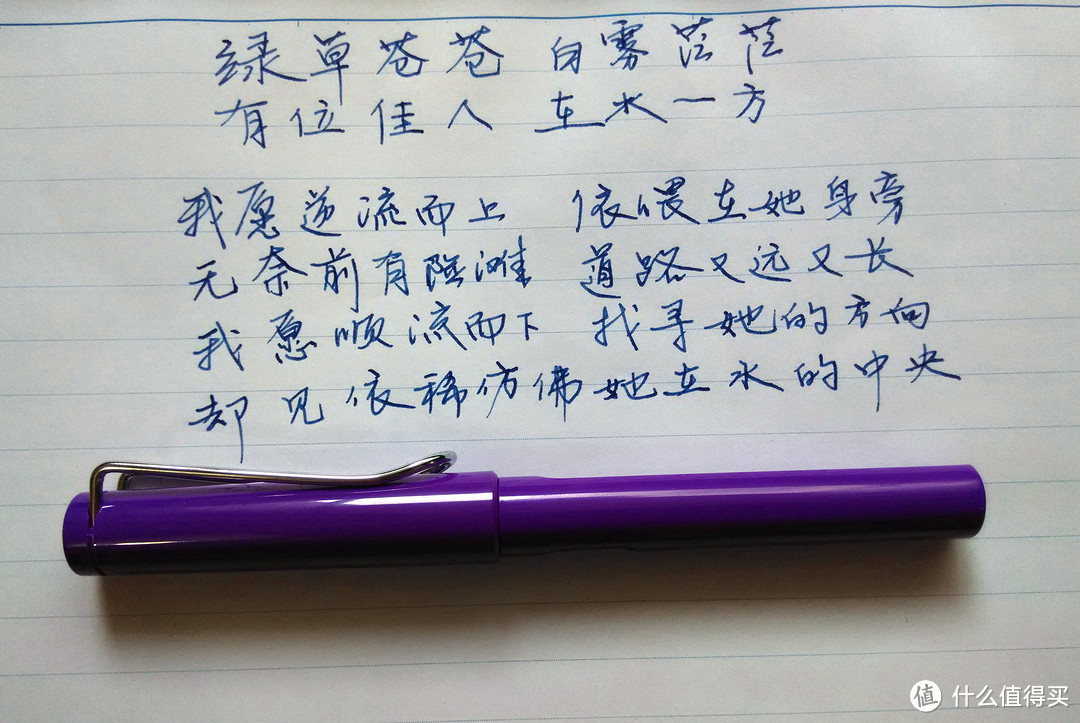 绿草苍苍 白雾茫茫
有位佳人 在水一方
我愿逆流而上 依偎在她身旁
无奈前有险滩 道路又远又长
我愿顺流而下 找寻她的方向
却见依稀仿佛她在水的中央
值 什么值得买